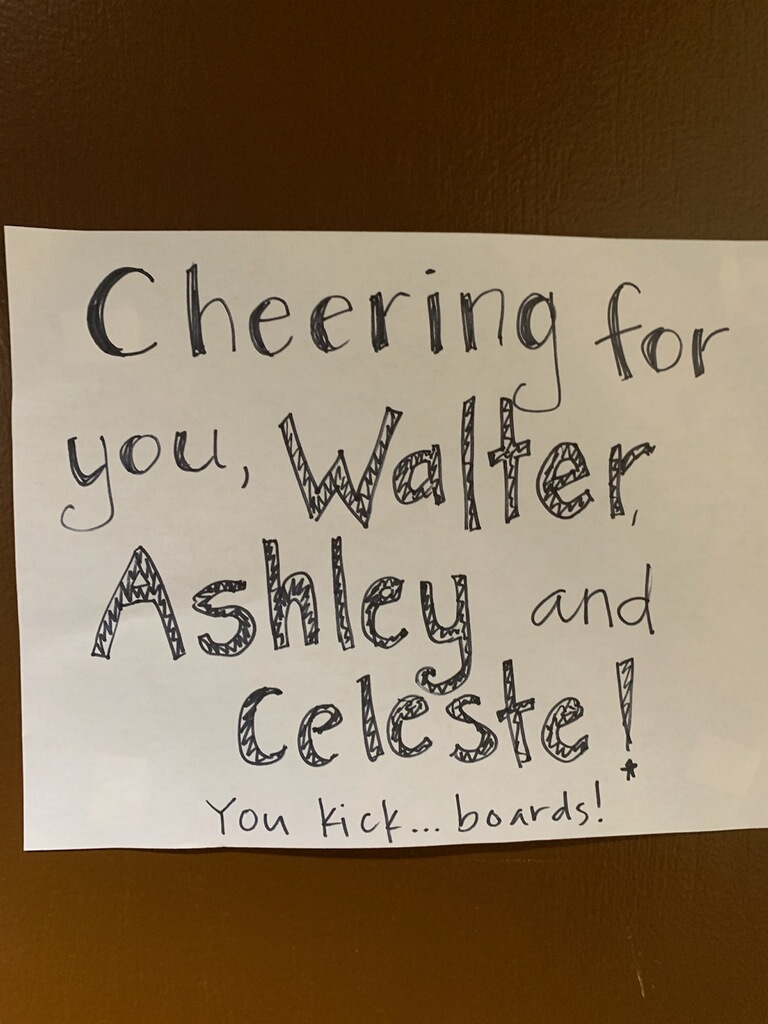 Cheering for
you, Walter,
Ashley and
Celeste!
You kick... boards!